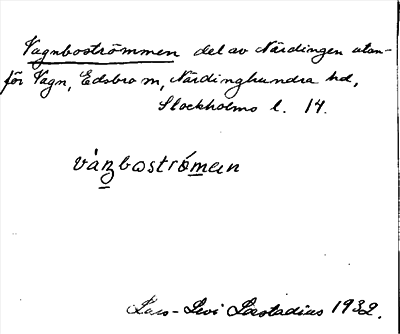 Vagnboströmmen del av Närdingen utan-
för Vagn, Edsbro sn, Närdinghundra hd,
Stockholms l. 14.
vàŋboströ́mən
Lars-Levi Læstadius 1932.